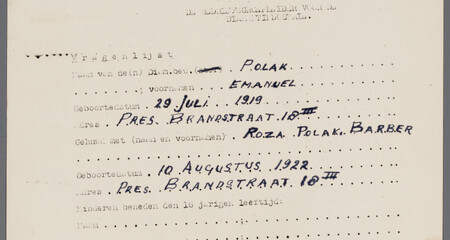 Vragenlijst
Naam van de(n) Diam.bew. POLAK
; voornamen EMANUEL
Geboortedatum 29 JULI 1919
Adres PRES. BRANDSTRAAT 18 III
Gehuwd met (naam en voornamen) ROZA POLAK. BARBER
Geboortedatum 10 AUGUSTUS 1922
Adres PRES. BRANDSTRAAT 18 III
Kinderen beneden den 16 jarigen leeftijd:
Naam